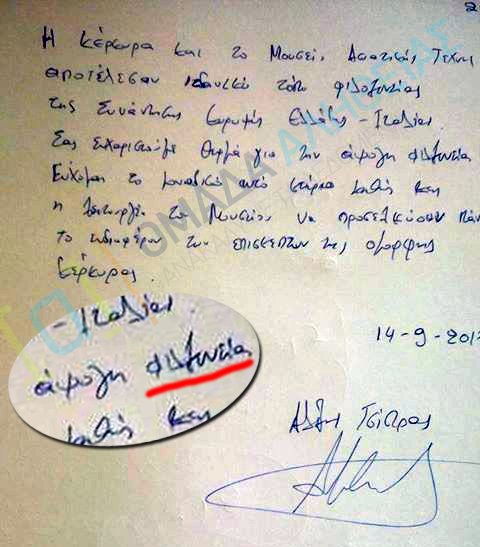 Η Κέρκυρα και το Μουσείο Ασιατικής Τέχνης
αποτέλεσαν ιδανικό τόπο φιλοξενίας
της Συνάντησης Κορυφής Ελλάδας - Ιταλίας
Σας ευχαριστούμε θερμά για την άψογη φιλοξενία
Εύχομαι το μοναδικό αυτό κτίριο καθώς και
η λειτουργία του Μουσείου να προσελκύσουν
το ενδιαφέρον των επισκεπτών της όμορφης
Κέρκυρας.
- Ιταλίας
άψογη φιλοξενία
καθώς και
14-9-201
Αλέξης Τσίπρας
ΟΜΑΔΑ ΑΛΗΘΕΙΑΣ